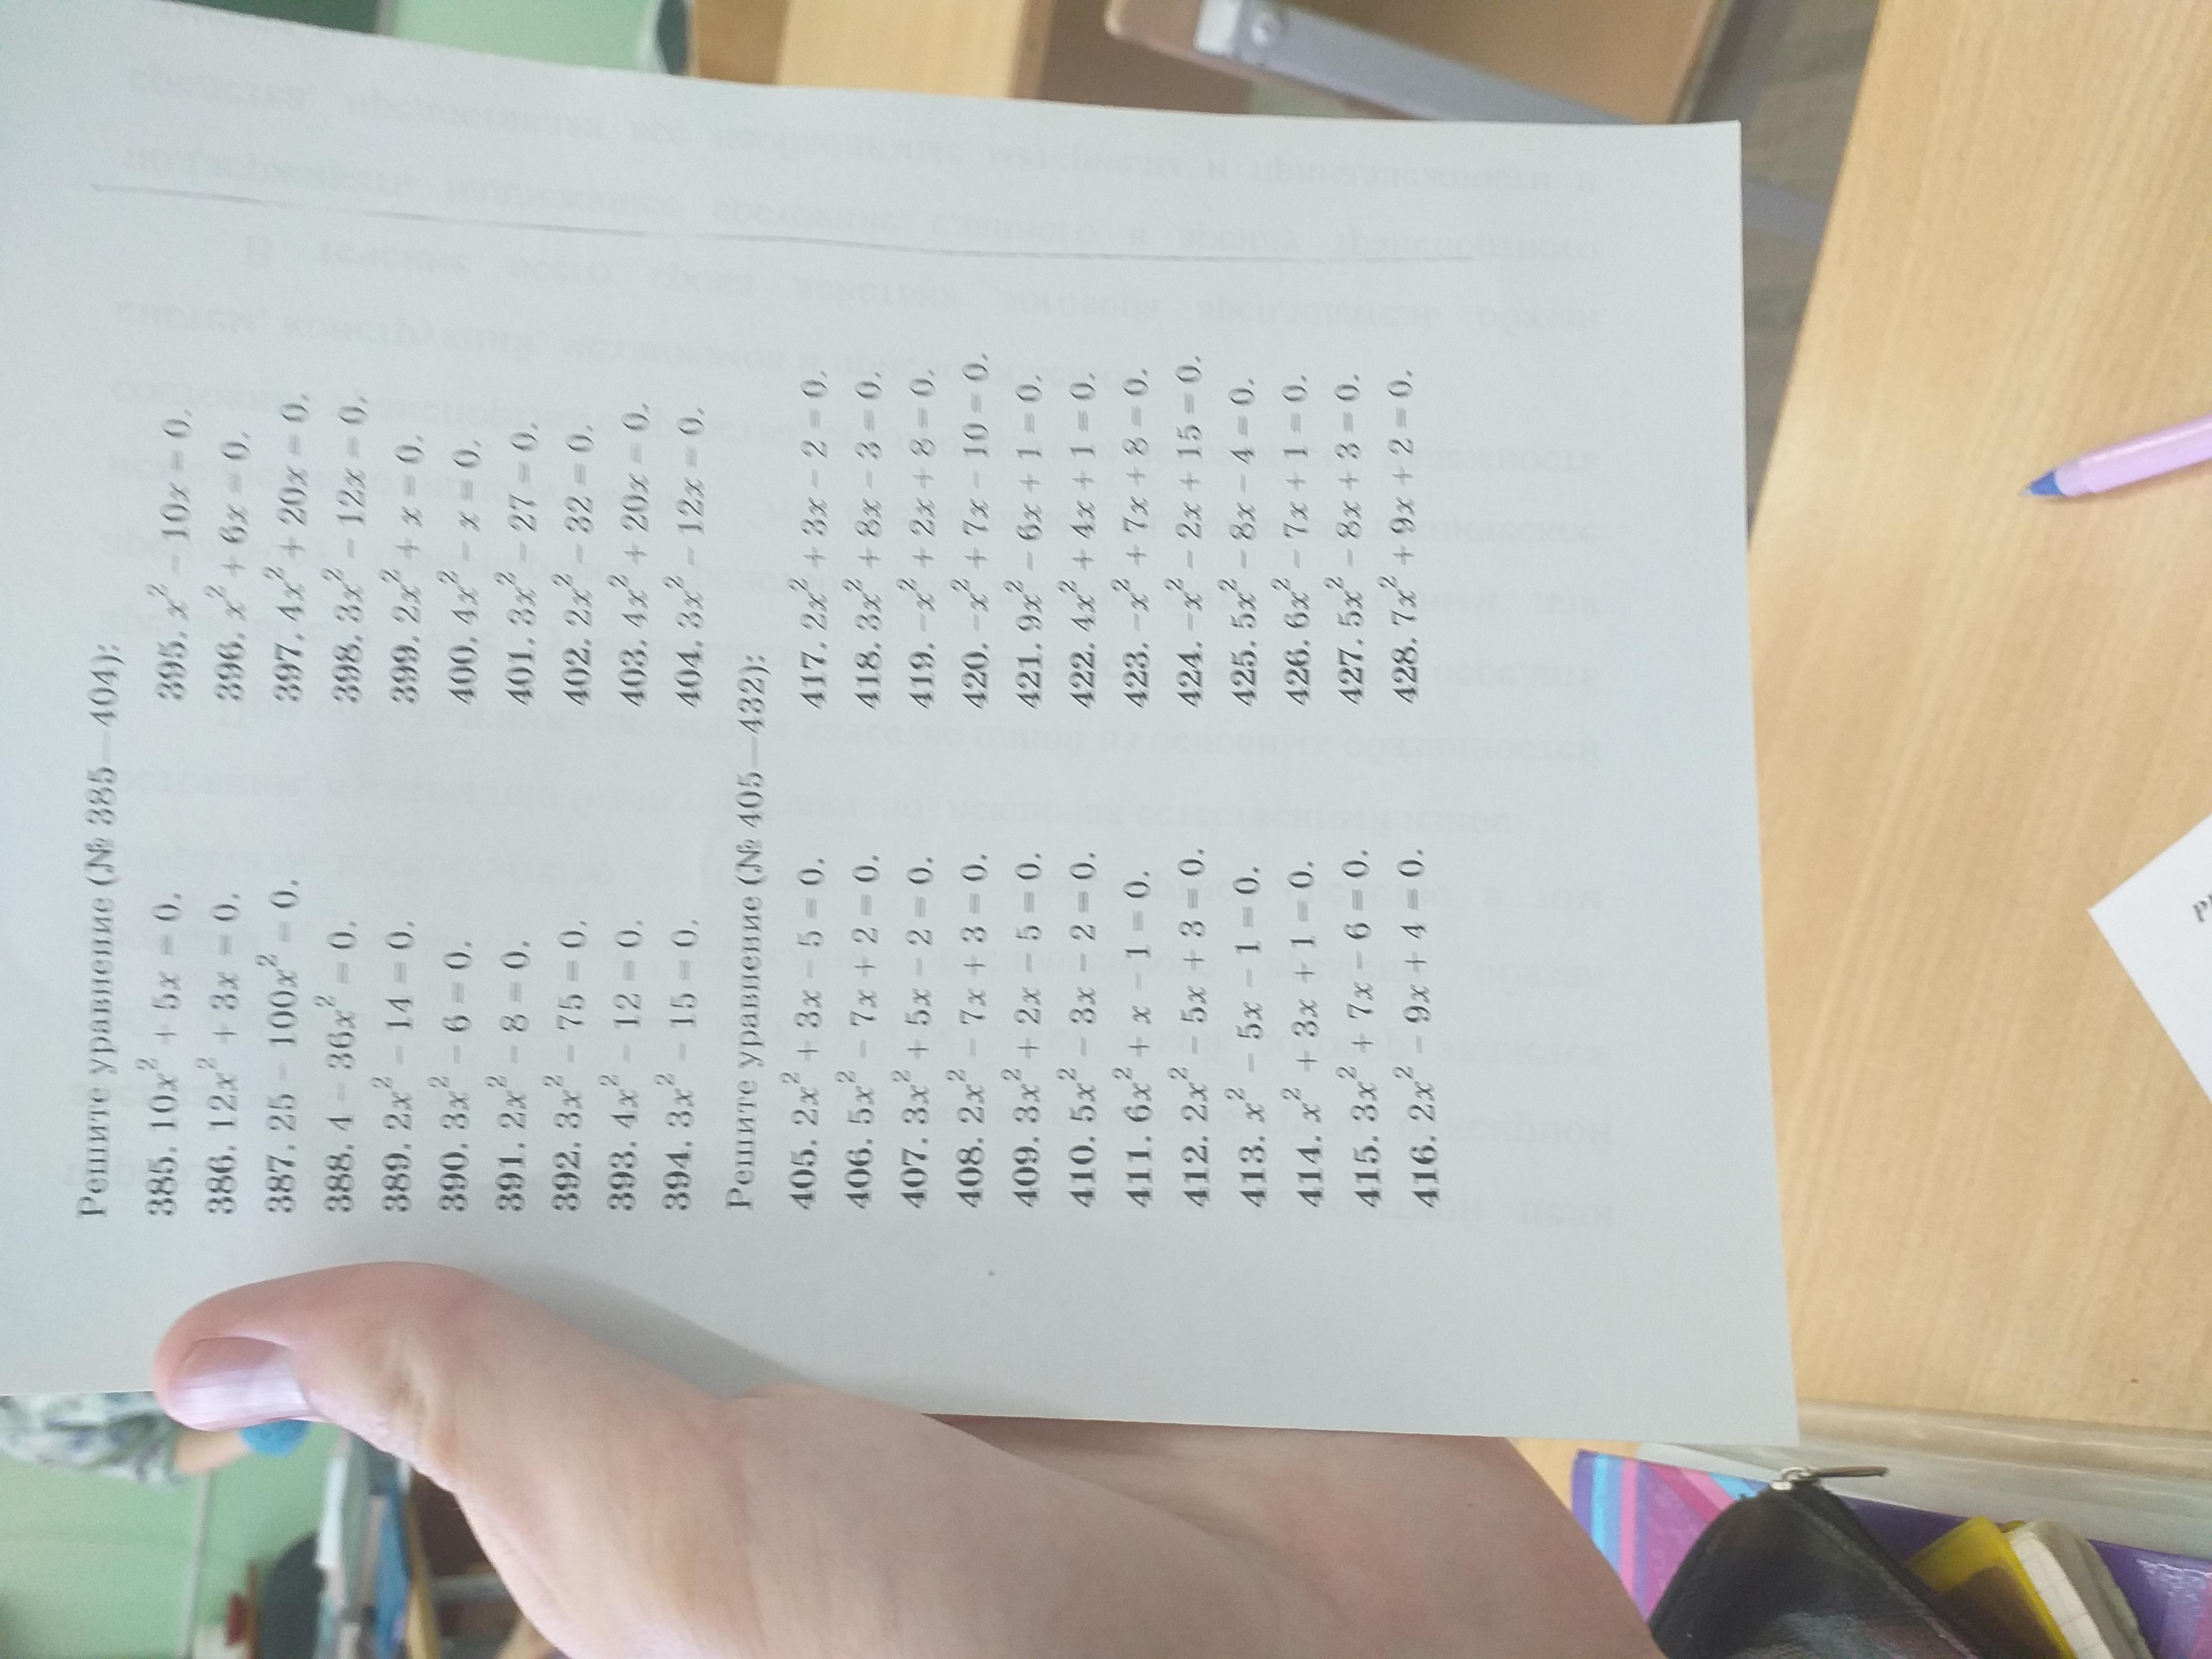 Решите уравнение (№ 385—404):
385. 10x² + 5x = 0.
386. 12x² + 3x = 0.
387. 25 − 100x² = 0.
388. 4 − 36x² = 0.
389. 2x² − 14 = 0.
390. 3x² − 6 = 0.
391. 2x² − 8 = 0.
392. 3x² − 75 = 0.
393. 4x² − 12 = 0.
394. 3x² − 15 = 0.
395. x² − 10x = 0.
396. x² + 6x = 0.
397. 4x² + 20x = 0.
398. 3x² − 12x = 0.
399. 2x² + x = 0.
400. 4x² − x = 0.
401. 3x² − 27 = 0.
402. 2x² − 32 = 0.
403. 4x² + 20x = 0.
404. 3x² − 12x = 0.
Решите уравнение (№ 405—432):
405. 2x² + 3x − 5 = 0.
406. 5x² − 7x + 2 = 0.
407. 3x² + 5x − 2 = 0.
408. 2x² − 7x + 3 = 0.
409. 3x² + 2x − 5 = 0.
410. 5x² − 3x − 2 = 0.
411. 6x² + x − 1 = 0.
412. 2x² − 5x + 3 = 0.
413. x² − 5x − 1 = 0.
414. x² + 3x + 1 = 0.
415. 3x² + 7x − 6 = 0.
416. 2x² − 9x + 4 = 0.
417. 2x² + 3x − 2 = 0.
418. 3x² + 8x − 3 = 0.
419. −x² + 2x + 8 = 0.
420. −x² + 7x − 10 = 0.
421. 9x² − 6x + 1 = 0.
422. 4x² + 4x + 1 = 0.
423. −x² + 7x + 8 = 0.
424. −x² − 2x + 15 = 0.
425. 5x² − 8x − 4 = 0.
426. 6x² − 7x + 1 = 0.
427. 5x² − 8x + 3 = 0.
428. 7x² + 9x + 2 = 0.